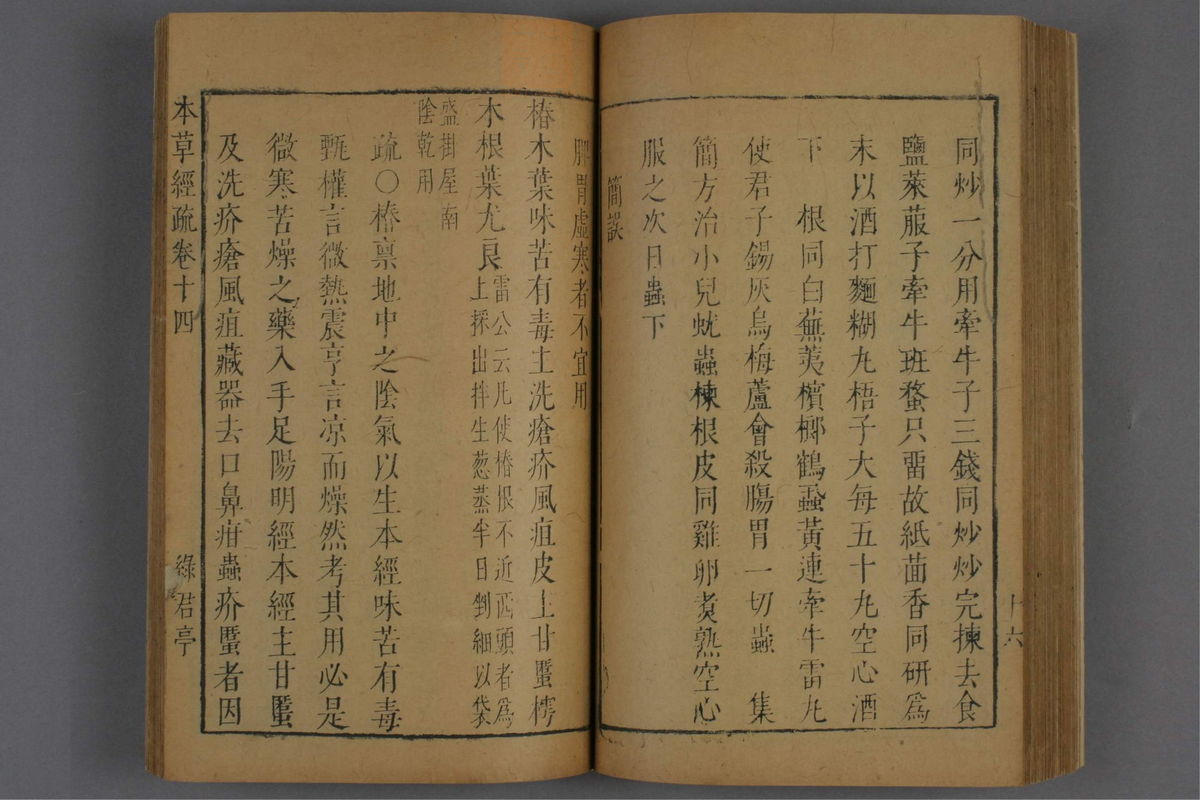 同炒一分用牽牛子三錢同炒炒完揀去食
鹽萊菔子牽牛班蝥只畱故紙茴香同研爲
末以酒打麵糊丸梧子大每五十丸空心酒
下 根同白蕪荑檳榔鶴蝨黃連牽牛雷丸
使君子錫灰烏梅蘆會殺腸胃一切蟲 集
簡方治小兒蚘蟲楝根皮同雞卵煮熟空心
服之次日蟲下
簡誤
脾胃虛寒者不宜用
椿木葉味苦有毒主洗瘡疥風疽皮主甘䘌樗
木根葉尤良
雷公云凡使椿根不近西頭者爲
上採出拌生葱蒸半日剉細以袋
盛掛屋南
陰乾用
疏〇椿禀地中之陰氣以生本經味苦有毒
甄權言微熱震亨言凉而燥然考其用必是
微寒苦燥之藥入手足陽明經本經主甘䘌
及洗疥瘡風疽藏器去口鼻疳蟲疥䘌者因
本草經疏 卷十四 綠君亭
十六